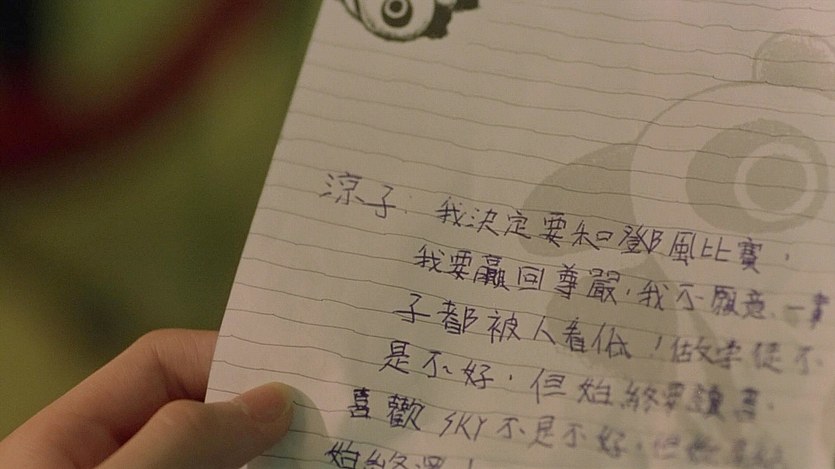 涼子：我決定要和鄧風比賽，
我要贏回尊嚴，我不願意一輩
子都被人看低！做文字從不
是不好，但始終要讀書．
喜歡SKY不是不好，但
始終